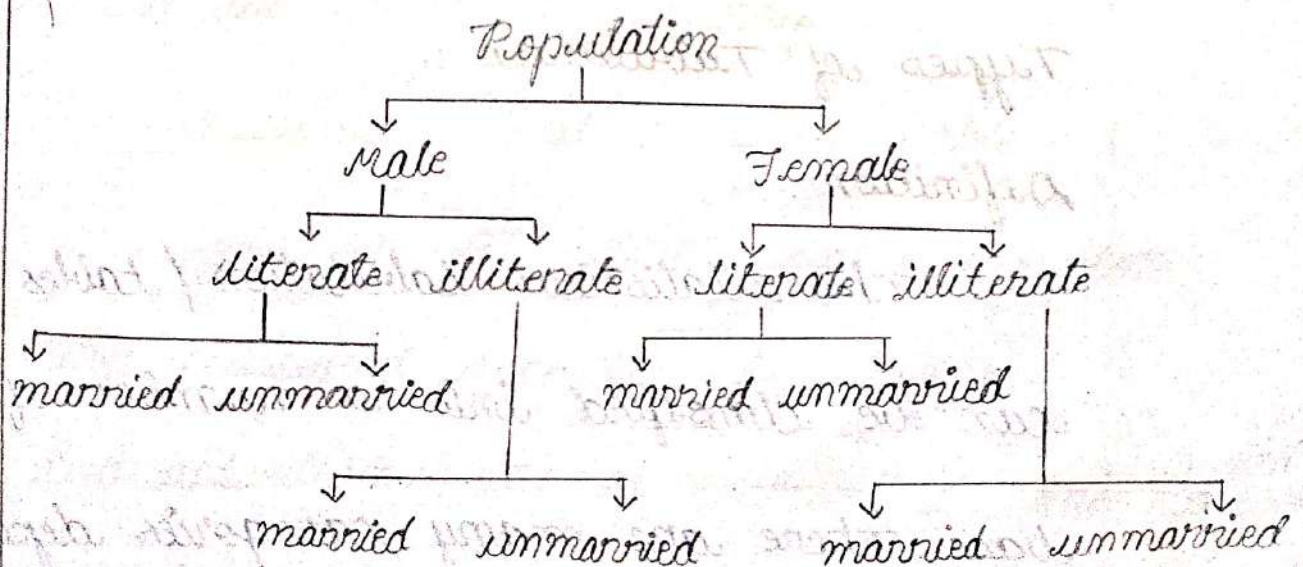 Population
Male Female
literate illiterate literate illiterate
married unmarried married unmarried
married unmarried married unmarried